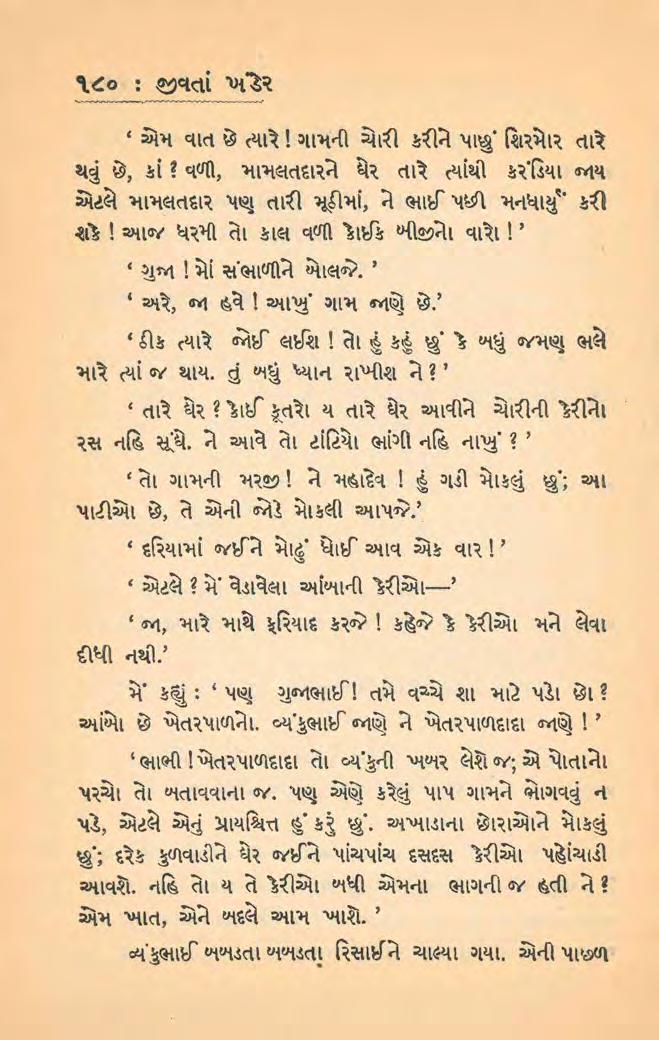 ૧૮૦ : જીવતાં ખંડેર
‘ એમ વાત છે ત્યારે ! ગામની ચોરી કરીને પાછું શિરમોર તારે
થવું છે, કાં ? વળી, મામલતદારને ઘેર તારે ત્યાંથી કરંડિયા જાય
એટલે મામલતદાર પણ તારી મૂઠીમાં, ને ભાઈ પછી મનધાર્યું કરી
શકે ! આજ ધરમી તો કાલ વળી કોઈક બીજીનો વારો ! ’
‘ ગુજા ! મોં સંભાળીને બોલજે. ’
‘ અરે, જા હવે ! આખું ગામ જાણે છે.’
‘ ઠીક ત્યારે જોઈ લઈશ ! તો હું કહું છું કે બધું જમણ ભલે
મારે ત્યાં જ થાય. તું બધું ધ્યાન રાખીશ ને ? ’
‘ તારે ઘેર ? કોઈ કૂતરો ય તારે ઘેર આવીને ચોરીની કેરીનો
રસ નહિ સૂંઘે. ને આવે તો ટાંટિયો ભાંગી નહિ નાખું ? ’
‘ તો ગામની મરજી ! ને મહાદેવ ! હું ગડી મોકલું છું; આ
પાટીઓ છે, તે એની જોડે મોકલી આપજે.’
‘ દરિયામાં જઈને મોઢું ધોઈ આવ એક વાર ! ’
‘ એટલે ? મેં વેડાવેલા આંબાની કેરીઓ—’
‘ જા, મારે માથે ફરિયાદ કરજે ! કહેજે કે કેરીઓ મને લેવા
દીધી નથી.’
મેં કહ્યું : ‘ પણ ગુજાભાઈ! તમે વચ્ચે શા માટે પડો છો ?
આંબો છે ખેતરપાળનો. વ્યંકુભાઈ જાણે ને ખેતરપાળદાદા જાણે ! ’
‘ ભાભી ! ખેતરપાળદાદા તો વ્યંકુની ખબર લેશે જ; એ પોતાનો
પરચો તો બતાવવાના જ. પણ એણે કરેલું પાપ ગામને ભોગવવું ન
પડે, એટલે એનું પ્રાયશ્ચિત્ત હું કરું છું. અખાડાના છોરાઓને મોકલું
છું; દરેક કુળવાડીને ઘેર જઈને પાંચપાંચ દસદસ કેરીઓ પહોંચાડી
આવશે. નહિ તો ય તે કેરીઓ બધી એમના ભાગની જ હતી ને ?
એમ ખાત, એને બદલે આમ ખાશે. ’
વ્યંકુભાઈ બબડતા બબડતા રિસાઈને ચાલ્યા ગયા. એની પાછળ